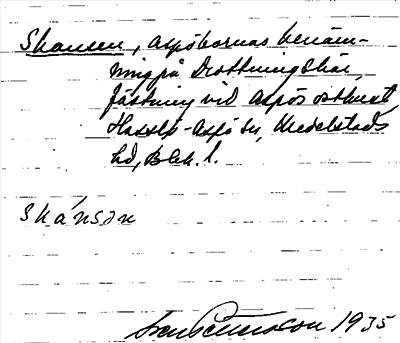 Skansen, aspöbornas benäm-
ning på Drottningskär,
fästning vid Aspös ostkust,
Hasslö-Aspö sn, Medelstads
hd, Blek. l.
skánsən
Sven Pettersson 1935